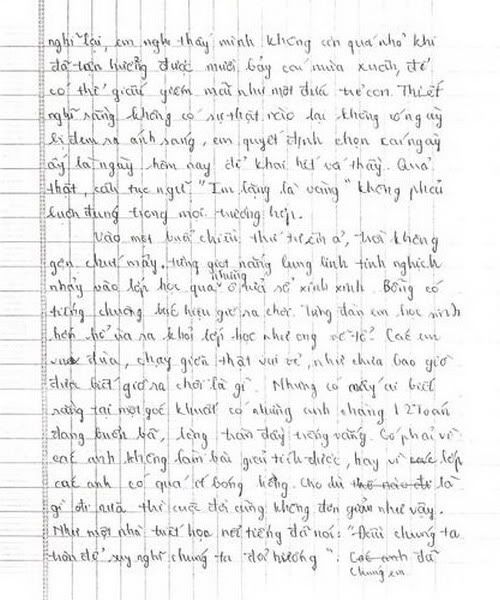 nghĩ lại, em nghĩ thấy mình không còn quá nhỏ khi
đã tận hưởng được mười bảy cái mùa xuân, để
có thể giấu giếm mãi như một đứa trẻ con. Thiết
nghĩ rằng không có sự thật nào lại không có ngày
bị đem ra ánh sáng, em quyết định chọn cái ngày
ấy là ngày hôm nay để khai hết với thầy. Quả
thật, câu tục ngữ "Im lặng là vàng" không phải
luôn đúng trong mọi trường hợp.
Vào một buổi chiều thứ tư êm ả, trời không
gợn chút mây. từng giọt nắng lung linh tinh nghịch
nhảy vào lớp học qua những ô cửa sổ xinh xinh. Bỗng có
tiếng chuông báo hiệu giờ ra chơi. Từng đàn em học sinh
hớn hở ùa ra khỏi lớp học như ong vỡ tổ. Các em
đùa, chạy giỡn thật vui vẻ, như chưa bao giờ
được biết giờ ra chơi là gì. Nhưng có mấy ai biết
rằng tại một góc khuất có những anh chàng 12 Toán
đang buồn bã, lòng tràn đầy tiếng vắng. Có phải vì
các anh không làm bài giải tích được, hay vì lớp
các anh có quá ít bóng hồng. Cho dù là
gì đi nữa thì cuộc đời cũng không đơn giản như vậy.
Như một nhà triết học nổi tiếng đã nói: "Đầu chúng ta
tròn để suy nghĩ chúng ta đổi hướng". Các anh đã
chúng em